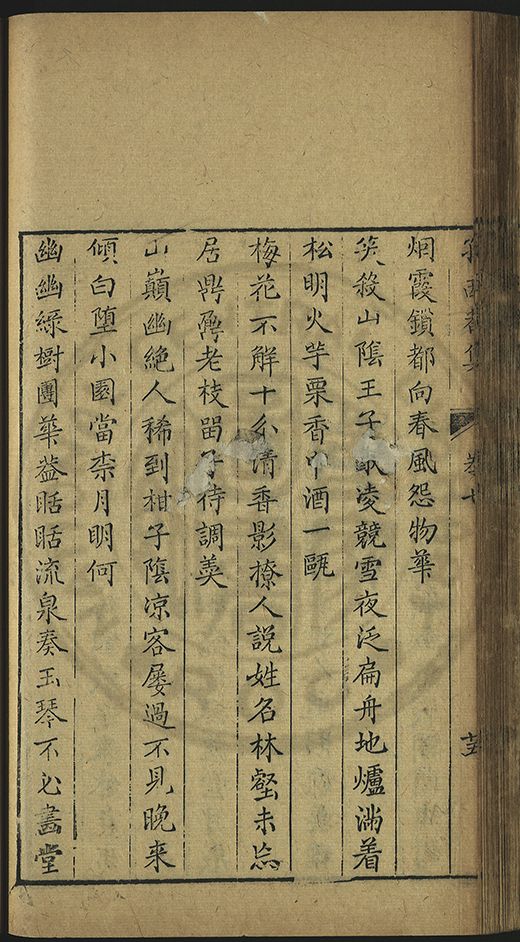 集 卷七 十五
烟霞鎖都向春風怨物華
笑殺山陰王子猷凌競雪夜泛扁舟地爐滿着
松明火芋栗香中酒一甌
梅花不解十分清香影撩人說姓名林壑未忘
居鼎鼐老枝留子待調羹
山巔幽絕人稀到柑子陰凉客屢過不見晚來
傾白墮小園當柰月明何
幽幽綠樹團華蓋聒聒流泉奏玉琴不必畫堂